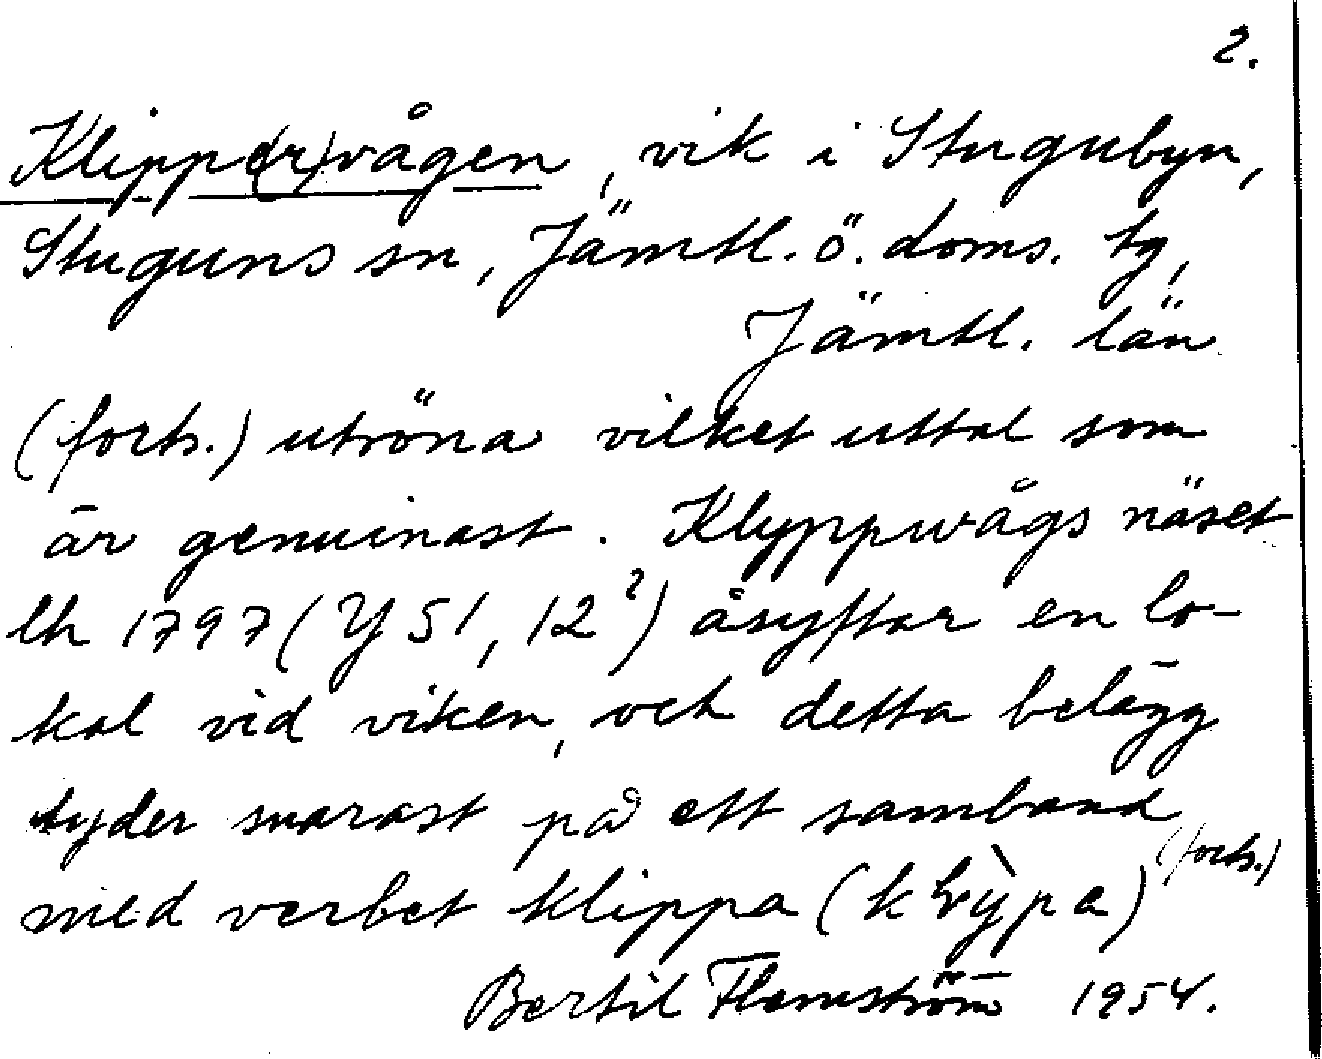 2.
Klippe(r)vågen, vik i Stugubyn,
Stuguns sn, Jämtl. ö. doms. tg,
Jämtl. län
(forts.) utröna vilket uttal som
är genuinast. Klyppwågs näset
lh 1797 (Y 51, 12²) åsyftar en lo-
kal vid viken, och detta belägg
tyder snarast på ett samband
(forts.)
med verbet klippa
Bertil Flemström 1954.